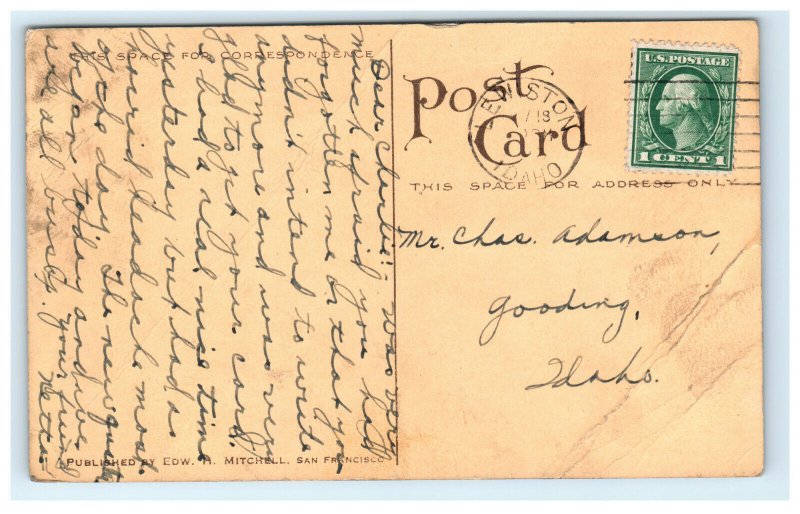 THIS SPACE FOR CORRESPONDENCE
Dear Charlie:- was very
much afraid you had
forgotten me or that you
didn't intend to write
anymore and was very
glad to get your card.
I had a real nice time
yesterday but had a
horrid headach most
of the day. The new
began to-day and we
are all busy. Your friend
PUBLISHED BY EDW. H. MITCHELL, SAN FRANCISCO
Post
Card
LEWISTON
IDAHO
U.S. POSTAGE
1 CENT 1
THIS SPACE FOR ADDRESS ONLY
Mr. Chas. Adamson,
Gooding,
Idaho.